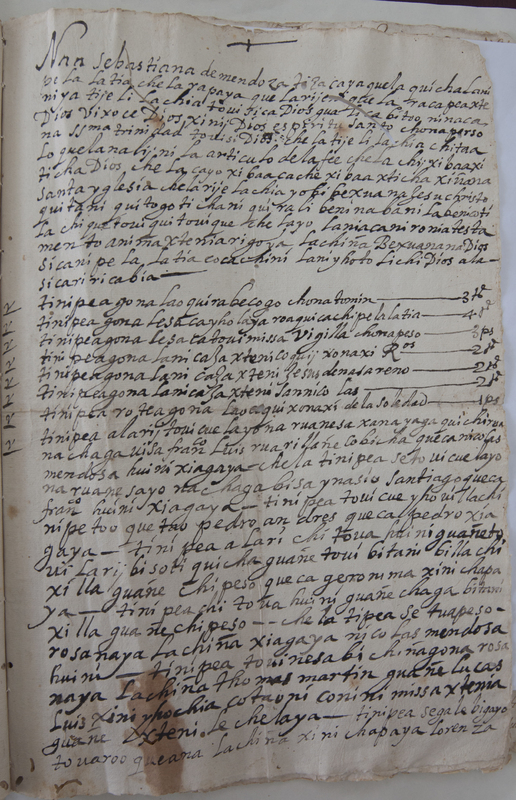 Nan sebastiana de mendoza tiza caya quela quicha Lani
pe la Latia chela rapaya que Larijeni quela racapea xte
niya tije li Lachia toui tica Dios gua Licabitoo ninaca
Dios vixoce Dios xini Dios espiritu santo chona perso
na ssma trinidad toui si Dios chela tije li Lachia chitaa
Lo quelana lij ni la articulo dela fee chela chi xibaa xi
ticha Dios chela cayo xibaa cache xibaa xticha xinana
santa yglesia chela rije lachia yobi bexuana Jesu christo
quitani quitogo ti chani quira li beni na bani la beni ati
la chi que toui quitouique chelayo laniacani roniatesta
mento anima xtenia rigoya lachina Bexuanana Dios
sicani pe la Latia coca chini laniy hoto Lichi Dios ala-
sicari ricabia
tinipea gona lao quira becogo chonatomin — 3 ts
tinipea gona lesaca yholaya roa quicachi pe la latia — 4 ps
tinipea gona lesa ca toui missa Vigilla chona peso — 3 ps
tini peagona lani caxa xteni coquij xonaxi Ros — 2 ts
tinipeagona Lani caxa xteni Jesus de nasareno — 2 ts
tinipeagona Lanicaxa xteni sannicolas — 2 ts
tinipea roteagona lao coqui xonaxi dela soledad — 1 ps
tinipea alarij toui cue layona ruanesa xana yaga quichiruа
na chaga bisa franco Luis rua rillane cobicha queca nicolas
mendosa huini xiagaya — chela tinipea se toui cue layo
na ruane sayo na chaga bisa ynasio santiago queca
franco huini xiagaya — tinipea toui cue yhoui lachi
ni pe too quetao pedro andres queca pedro xia
gaya — tini pea alari chi toua huini guañeto
ui Larij bisoti quicha guañe toui bitani billachi
xilla guañe chi peso queca geronima xini chapa
ya — tini peachi toua huini guañe chaga bitani
xilla guañe chi peso — chela tipea se tuapeso-
rosa naya Lachiña xiagaya nicolas mendosa
huini — tinipea toui nesa bichinagona rosa
naya Lachiña thomas martin guañe lucas
Luis xini yhochia cotaoni conini missa xtenia
guañe Exteni le chelaya — tinipea sega le bigayo
touaroo queana lachiña xini chapaya lorenza